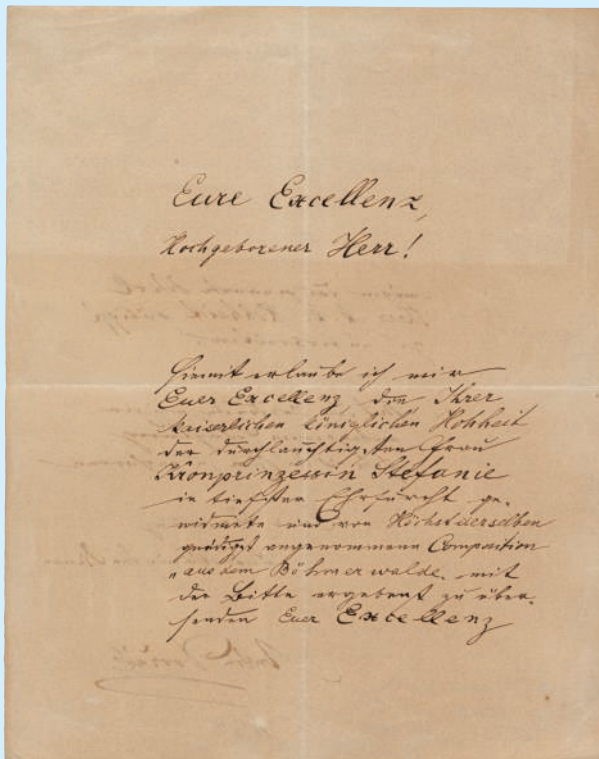 Eure Excellenz,
Hochgeborener Herr!
Hiemit erlaube ich mir
Euer Excellenz, die Ihrer
kaiserlichen königlichen Hohheit
der durchlauchtigsten Frau
Kronprinzessin Stefanie
in tiefster Ehrfurcht ge-
widmete und von Höchstderselben
gnädigst angenommene Composition
„aus dem Böhmerwalde„ mit
der Bitte ergebenst zu über-
senden Euer Excellenz